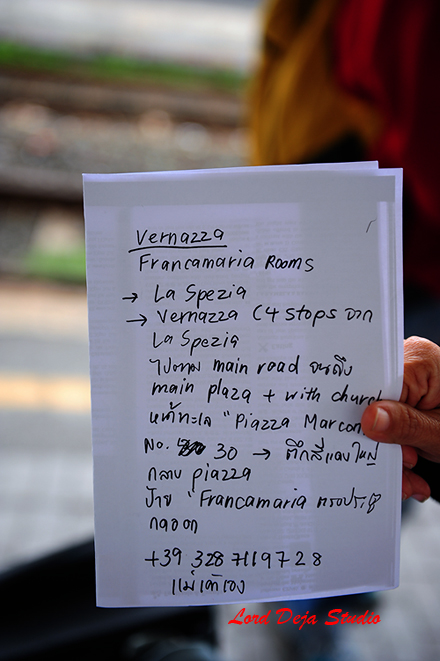 Vernazza
Francamaria Rooms
→ La Spezia
→ Vernazza (4 stops จาก
La Spezia
ไปตาม main road จนถึง
main plaza + with church
หน้าทะเล "Piazza Marconi
No. 30 → ตึกสีแดงใหญ่
กลาง piazza
ป้าย "Francamaria ตรงประตู
กดออด
+39 328 7119728
Lord Deja Studio